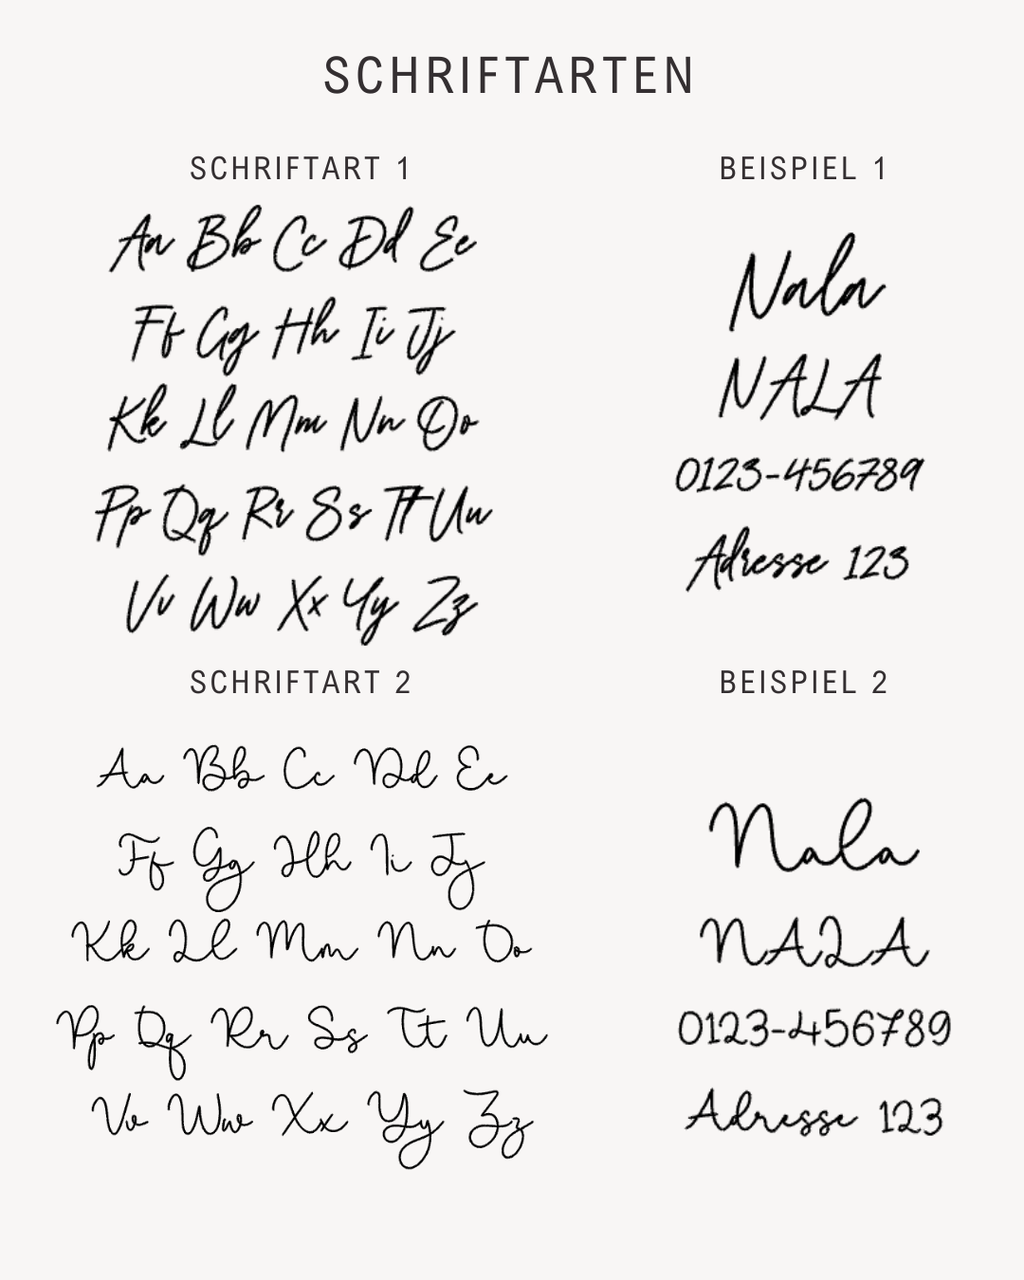 SCHRIFTARTEN
SCHRIFTART 1
Aa Bb Cc Dd Ee
Ff Gg Hh Ii Jj
Kk Ll Mm Nn Oo
Pp Qq Rr Ss Tt Uu
Vv Ww Xx Yy Zz
BEISPIEL 1
Nala
NALA
0123-456789
Adresse 123
SCHRIFTART 2
Aa Bb Cc Dd Ee
Ff Gg Hh Ii Jj
Kk Ll Mm Nn Oo
Pp Qq Rr Ss Tt Uu
Vv Ww Xx Yy Zz
BEISPIEL 2
Nala
NALA
0123-456789
Adresse 123